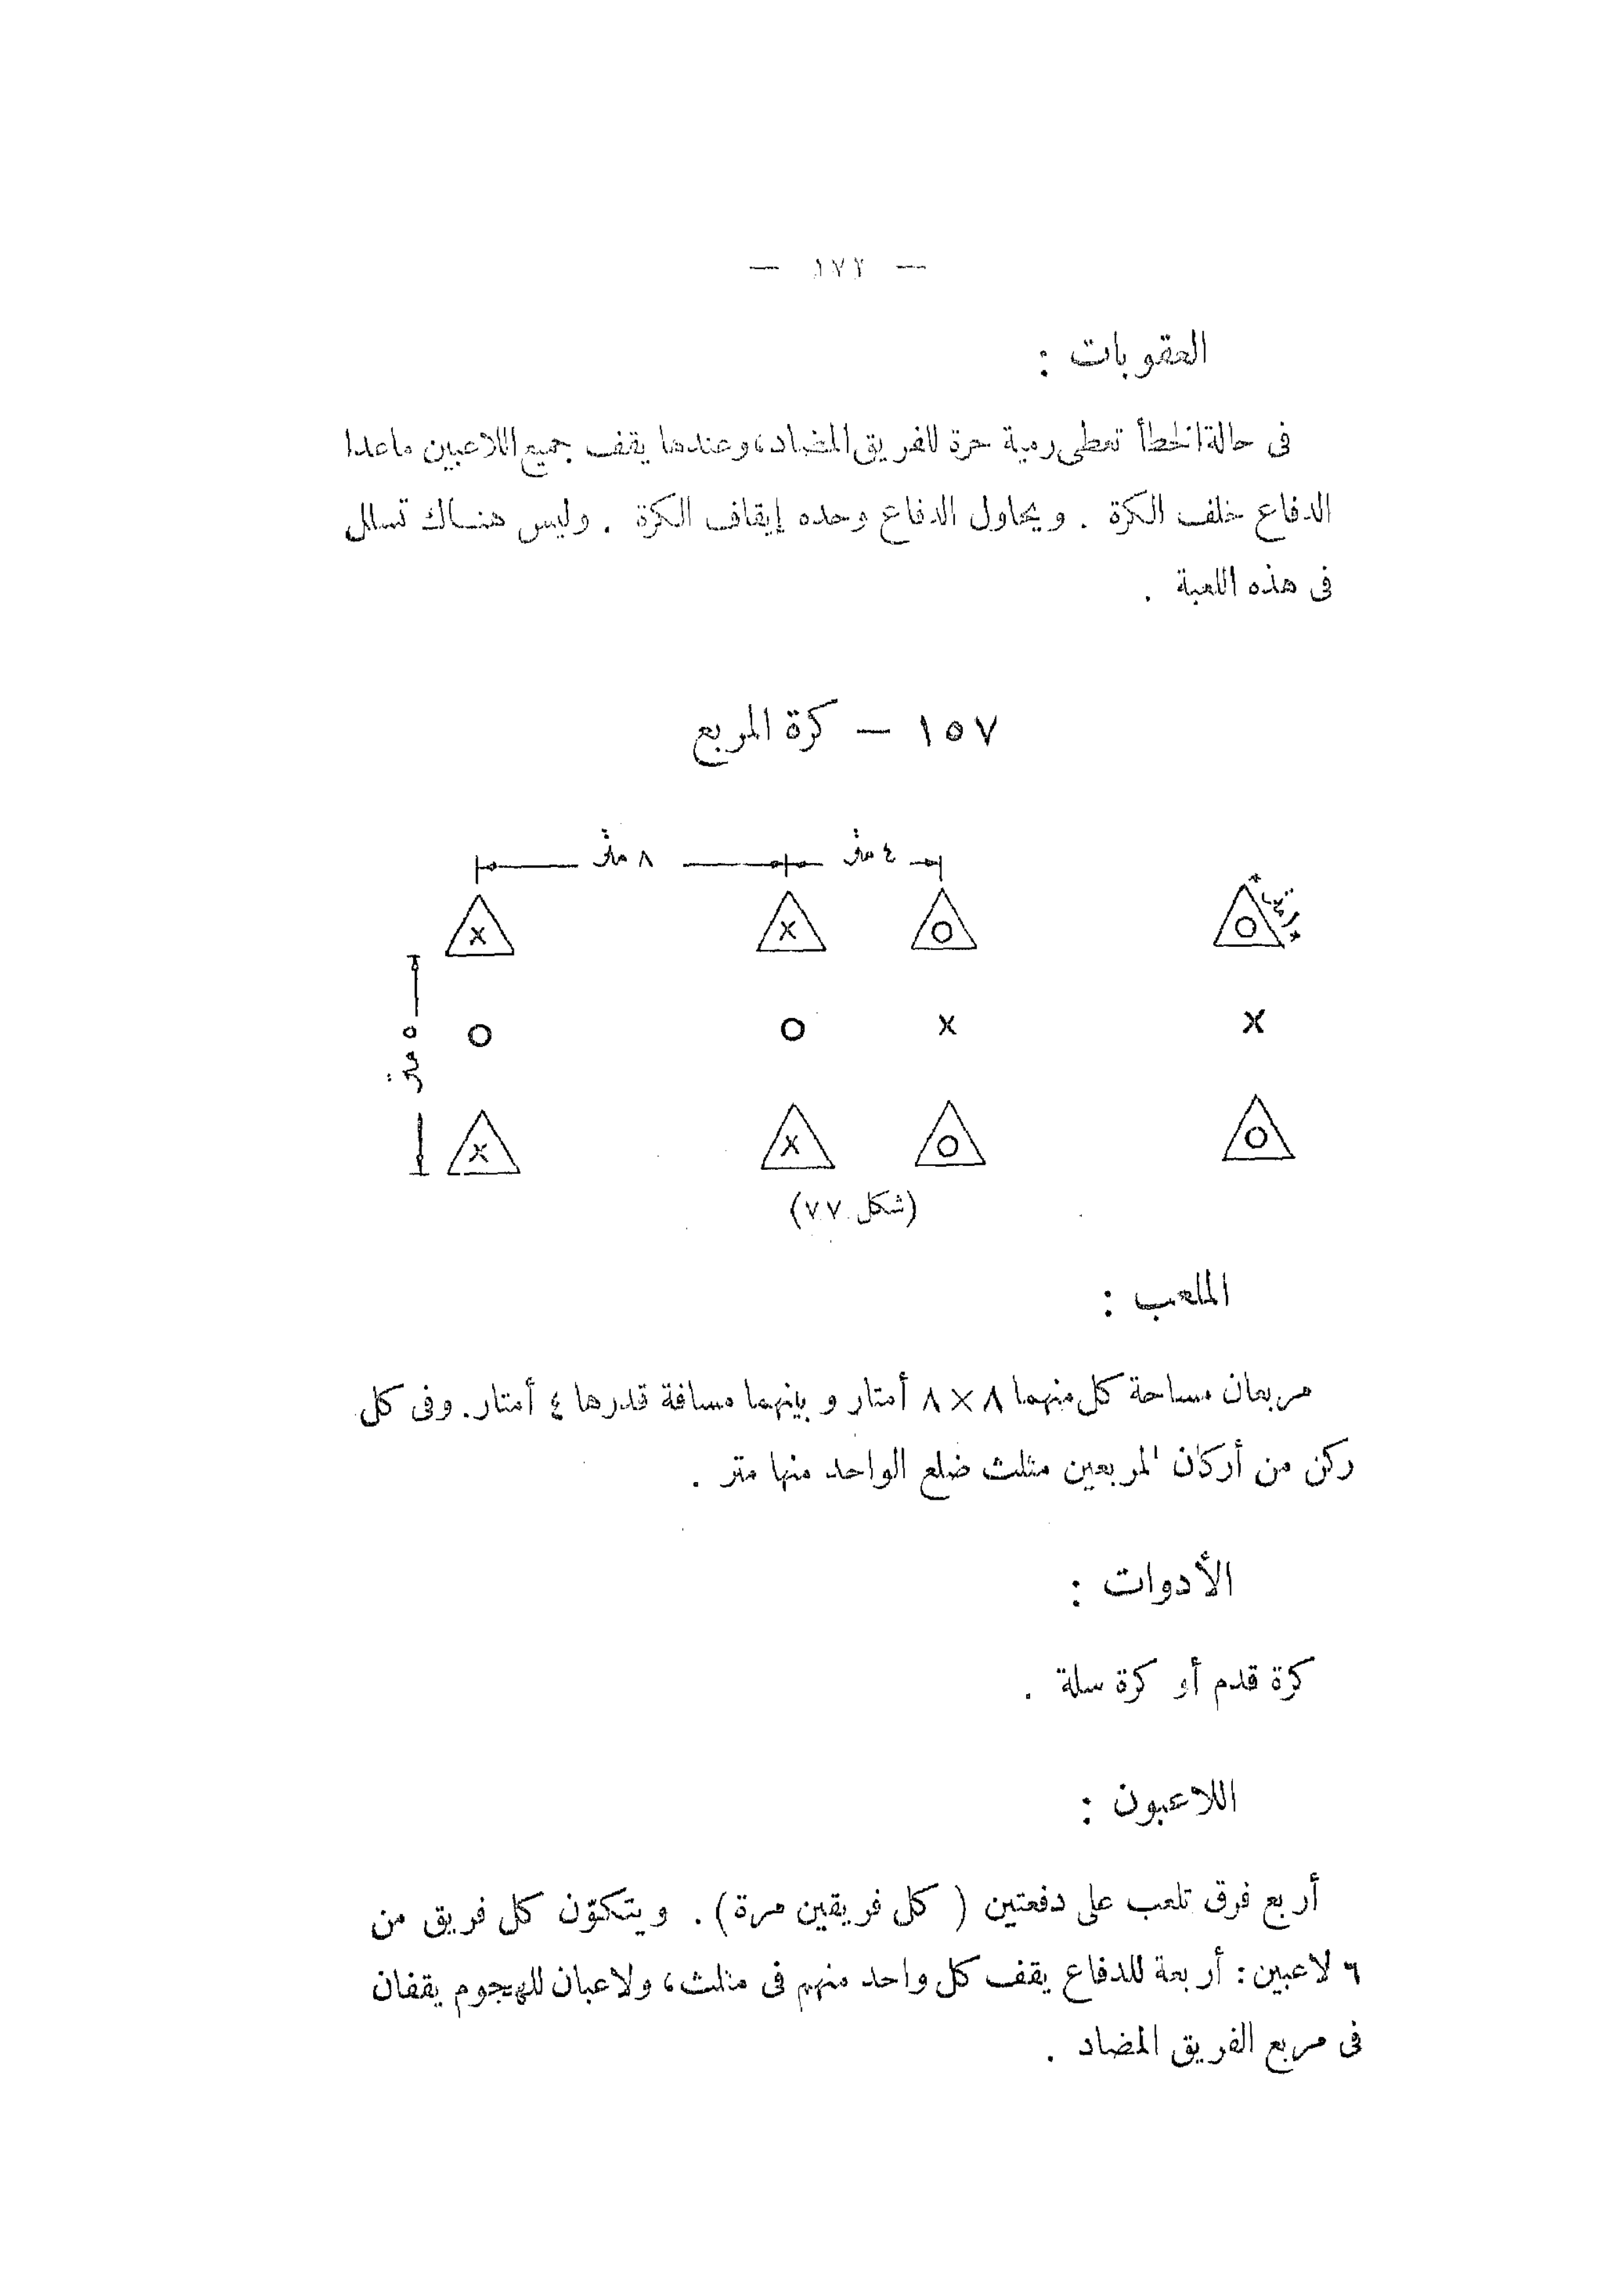 — ١٧٢ —
العقوبات :
فى حالة الخطأ تعطى رمية حرة للفريق المضاد، وعندها يقف جميع اللاعبين ماعدا
الدفاع خلف الكرة . ويحاول الدفاع وحده إيقاف الكرة . وليس هناك تسلل
فى هذه اللعبة .
١٥٧ — كرة المربع
٨ متر ٤ متر
x x o o
o o x x
٥ متر
x x o o
(شكل ٧٧)
الملعب :
مربعان مساحة كل منهما ٨ × ٨ أمتار و بينهما مسافة قدرها ٤ أمتار. وفى كل
ركن من أركان المربعين مثلث ضلع الواحد منها متر .
الأدوات :
كرة قدم أو كرة سلة .
اللاعبون :
أربع فرق تلعب على دفعتين ( كل فريقين مرة ) . ويتكوّن كل فريق من
٦ لاعبين : أربعة للدفاع يقف كل واحد منهم فى مثلث، ولاعبان للهجوم يقفان
فى مربع الفريق المضاد .